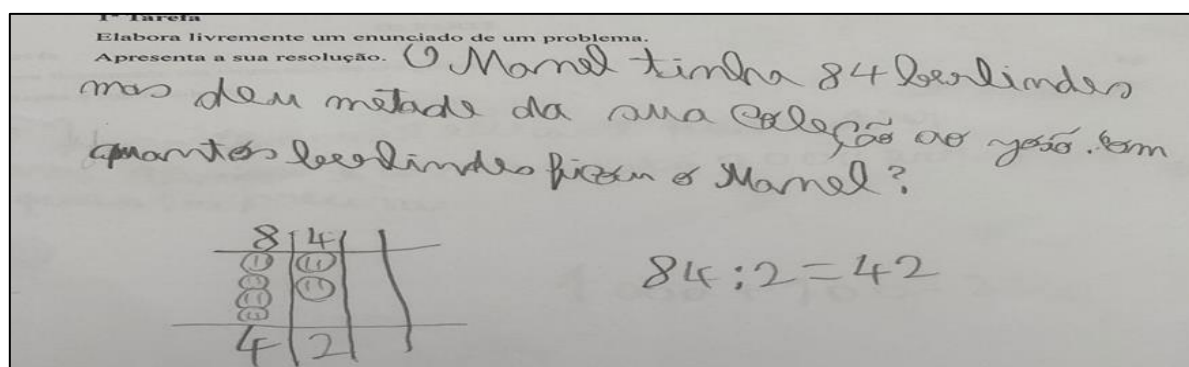 1ª Tarefa
Elabora livremente um enunciado de um problema.
Apresenta a sua resolução. O Manel tinha 84 berlindes
mas deu metade da sua coleção ao João. Com
quantos berlindes ficou o Manel?
8 4
84 : 2 = 42
4 2